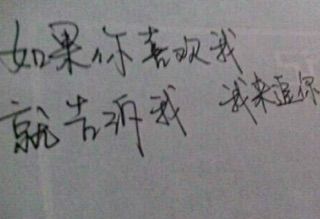 如果你喜欢我
就告诉我 我来追你